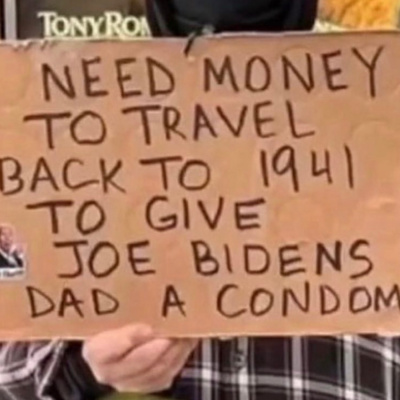 TONY ROM
NEED MONEY
TO TRAVEL
BACK TO 1941
TO GIVE
JOE BIDENS
DAD A CONDOM